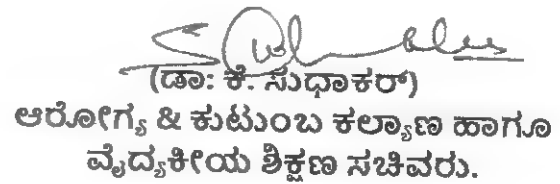 (ಡಾ: ಕೆ. ಸುಧಾಕರ್)
ಆರೋಗ್ಯ & ಕುಟುಂಬ ಕಲ್ಯಾಣ ಹಾಗೂ
ವೈದ್ಯಕೀಯ ಶಿಕ್ಷಣ ಸಚಿವರು.